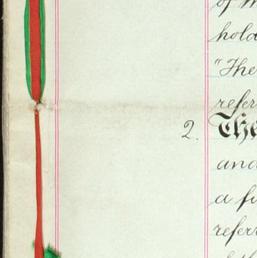 of th
hold
"The
refer
2. The
and
a fu
referr